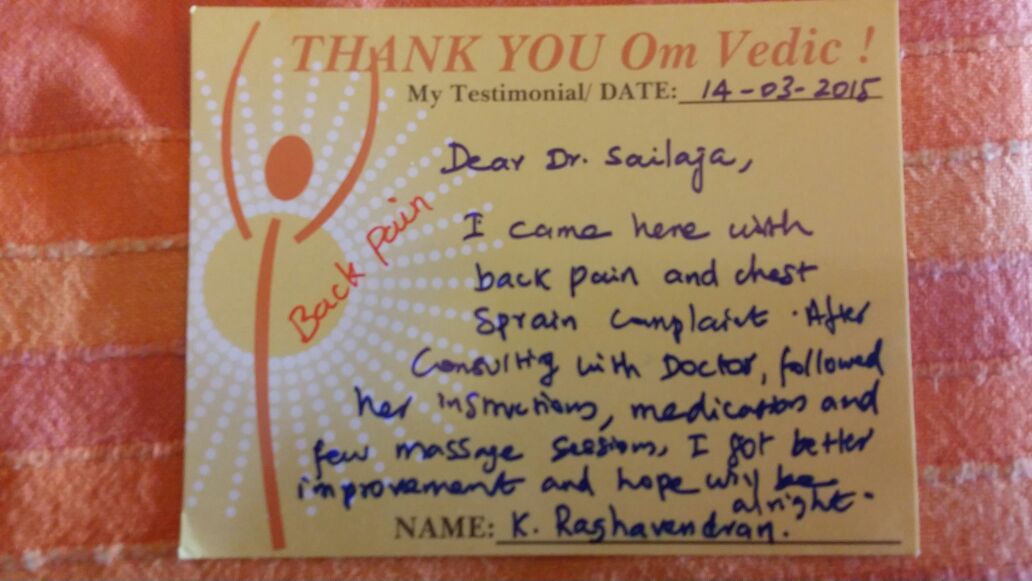 THANK YOU Om Vedic !
My Testimonial/ DATE: 14-03-2015
Dear Dr. Sailaja,
Back pain
I came here with
back pain and chest
Sprain Complaint. After
Consulting with Doctor, followed
her instructions, medications and
few massage sessions, I got better
improvement and hope will be
alright.
NAME: K. Raghavendran.